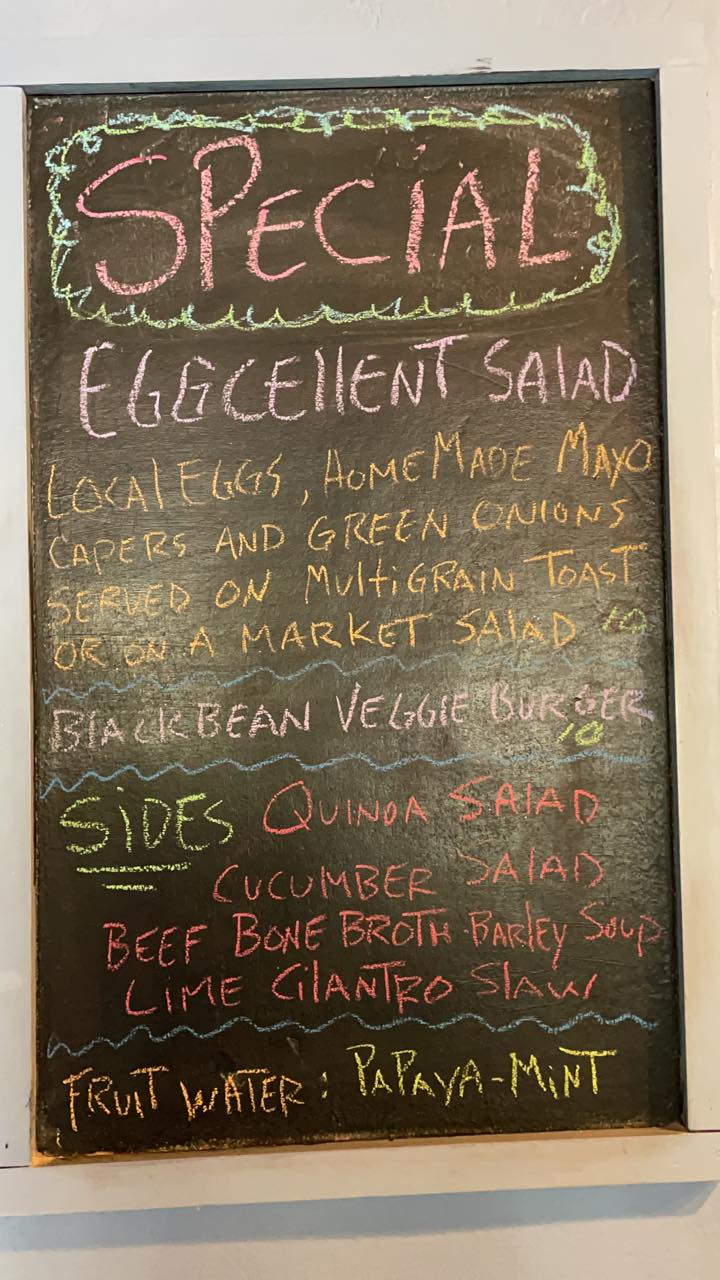 SPECIAL
EGGCEllENT SAlAD
LOCAl EGGS, HOMEMADE MAYO
CAPERS AND GREEN ONIONS
SERVED ON MultiGRAIN TOAST
OR ON A MARKET SAlAD 10
BlACK BEAN VEGGIE BURGER
10
SiDES QUINOA SAlAD
CUCUMBER SAlAD
BEEF BONE BROTH-BARlEY SOUP
LiME CilANTRO SlAW
FRUiT WATER: PAPAYA-MiNT